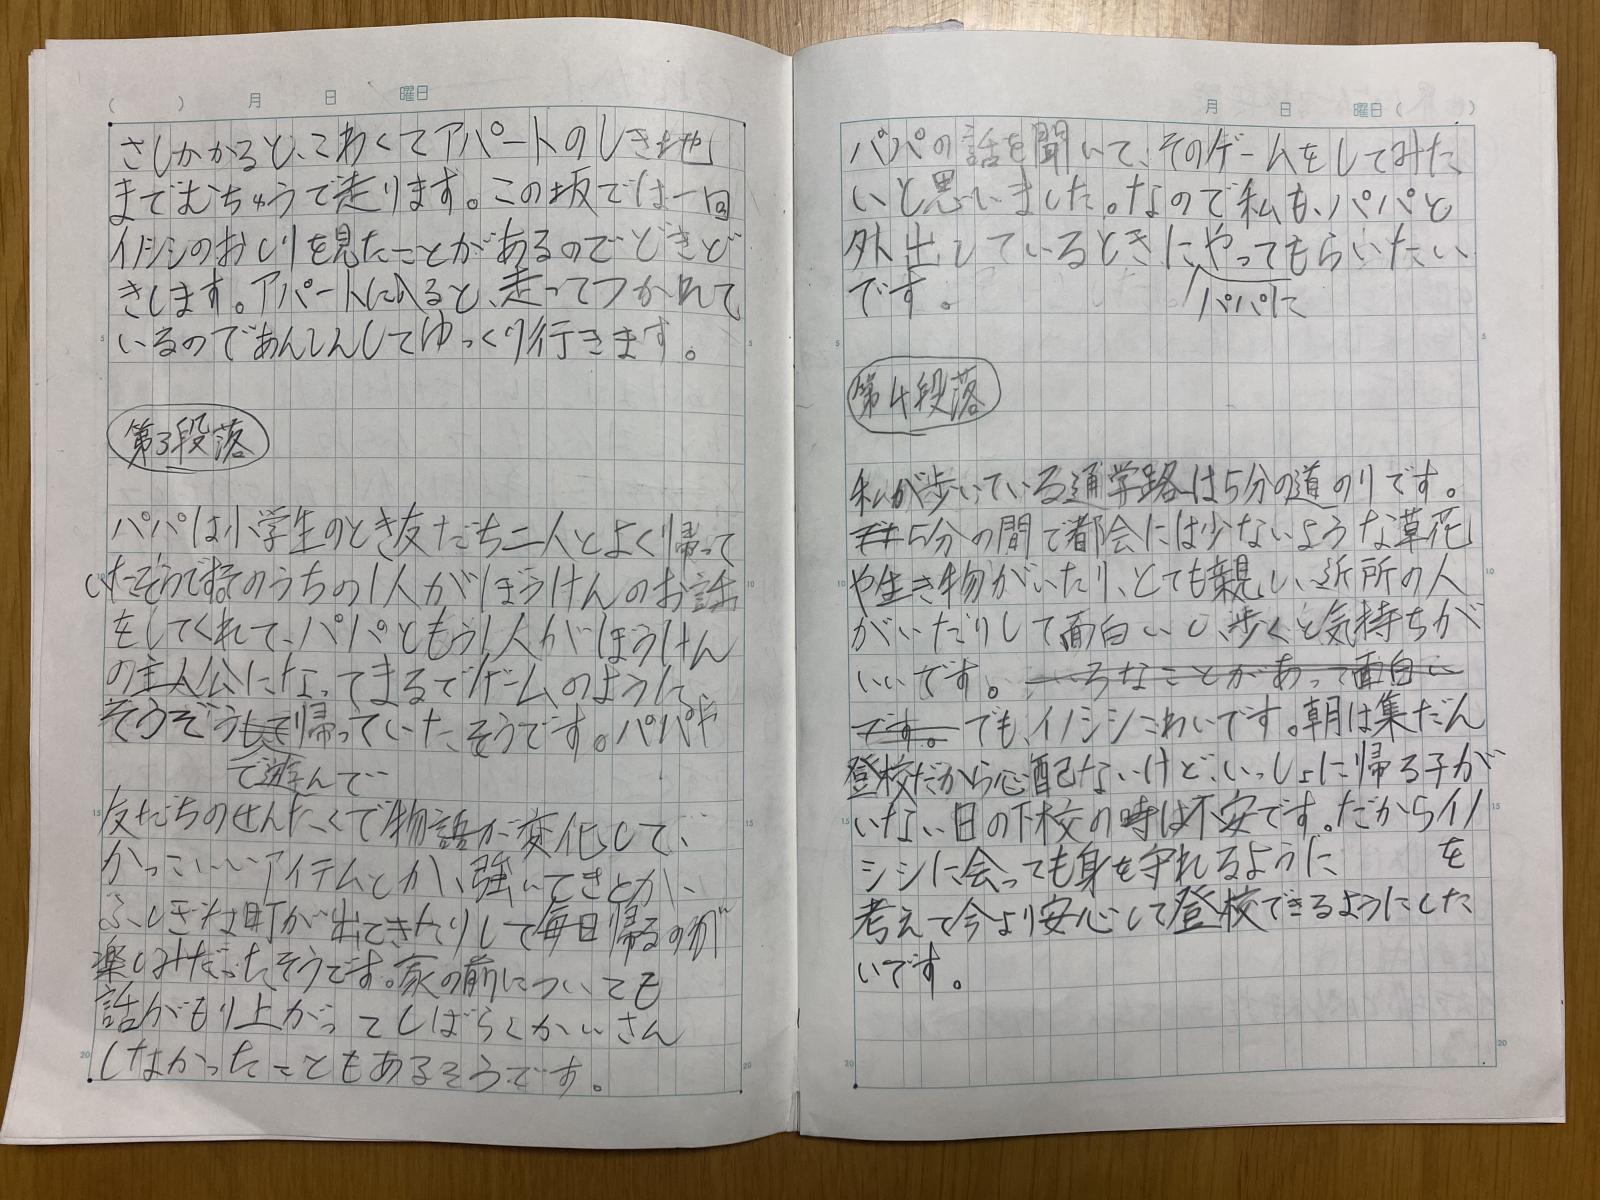 ( ) 月 日 曜日
さしかかると、こわくてアパートのしき地
までむちゅうで走ります。この坂では一回
イノシシのおしりを見たことがあるのでどきど
きします。アパートに入ると、走ってつかれて
いるのであんしんしてゆっくり行きます。
第3段落
パパは小学生のとき友だち二人とよく帰って
いたそうです。そのうちの1人がぼうけんのお話
をしてくれて、パパともう1人がぼうけん
の主人公になってまるでゲームのように、
そうぞうして帰っていたそうです。パパや
で遊んで
友だちのせんたくで物語が変化して、
かっこいいアイテムとか、強いてきとか、
ふしぎな町が出てきたりして毎日帰るのが
楽しみだったそうです。家の前についても
話がもり上がってしばらくかいさん
しなかったこともあるそうです。
月 日 曜日 ( )
パパの話を聞いて、そのゲームをしてみた
いと思いました。なので私も、パパと
外出しているときにやってもらいたい
です。
パパに
第4段落
私が歩いている通学路は5分の道のりです。
5分の間で都会には少ないような草花
や生き物がいたり、とても親しい近所の人
がいたりして面白いし、歩くと気持ちが
いいです。いろなことがあって面白い
です。でも、イノシシこわいです。朝は集だん
登校だから心配ないけど、いっしょに帰る子が
いない日の下校の時は不安です。だからイノ
シシに会っても身を守れるように を
考えて今より安心して登校できるようにした
いです。
5
10
15
20
5
10
15
20
5
10
15
20
5
10
15
20